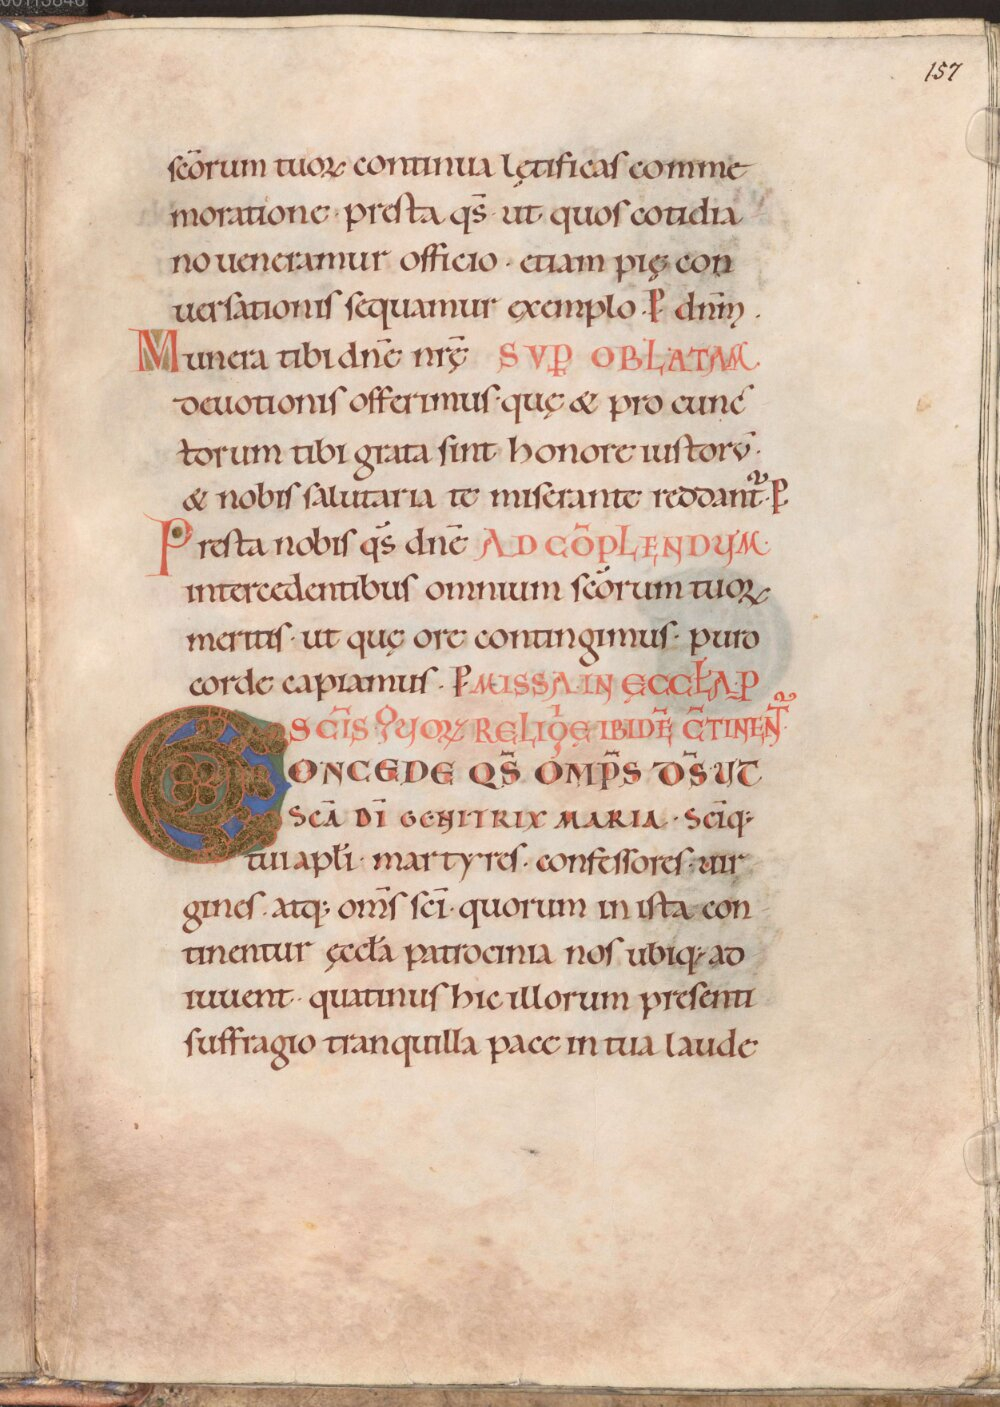 157
scōrum tuoꝝ continua lętificas comme
moratione · presta qs̄ · ut quos cotidia
no ueneramur officio · etiam pię con
uersationis sequamur exemplo · P dnm̄ .
Munera tibi dnē nrę̄ SVP OBLATAM
deuotionis offerimus · quę & pro cunc
torum tibi grata sint honore iustorū ·
& nobis salutaria te miserante reddant᷑ · P
Presta nobis qs̄ dnē AD CŌPLENDUM·
intercedentibus omnium scōrum tuoꝝ
meritis · ut quę ore contingimus · puro
corde capiamus · P MISSA IN ĘCCŁA P
SCĪS QUOꝝ RELIQ'ĘE IBIDĒ C̄TINENT᷑·
CONCEDE QS̄ OMP̄S D̄S UT
SCĀ DĪ GENITRIX MARIA · SCĪQ;
tui apłi · martyres · confessores · uir
gines · atq; om̄s scī · quorum in ista con
tinentur ęccła patrocinia nos ubiq; ad
iuuent · quatinus hic illorum presenti
suffragio tranquilla pace in tua laude